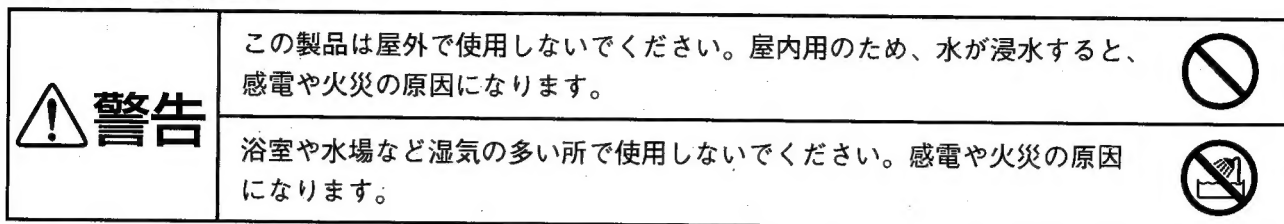 警告
この製品は屋外で使用しないでください。屋内用のため、水が浸水すると、
感電や火災の原因になります。
浴室や水場など湿気の多い所で使用しないでください。感電や火災の原因
になります。